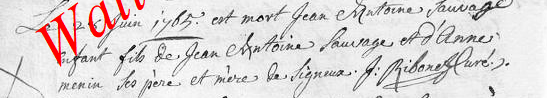 Le 25 juin 1765. est mort Jean Antoine Sauvage
enfant fils de Jean Antoine Sauvage et d'Anne
menin ses père et mère de Signeux. J. Ribonet Curé.
Wat